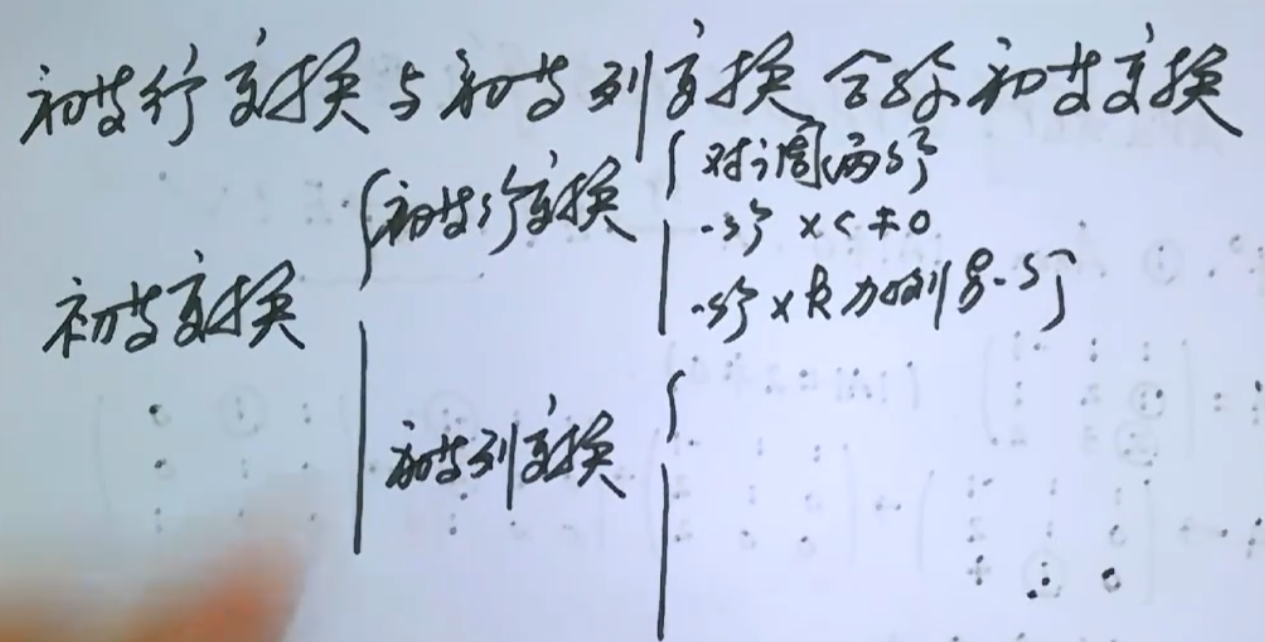 初等行变换与初等列变换合称初等变换
对调两行
初等行变换
一行 × c ≠ 0
初等变换
一行 × k 加到另一行
初等列变换